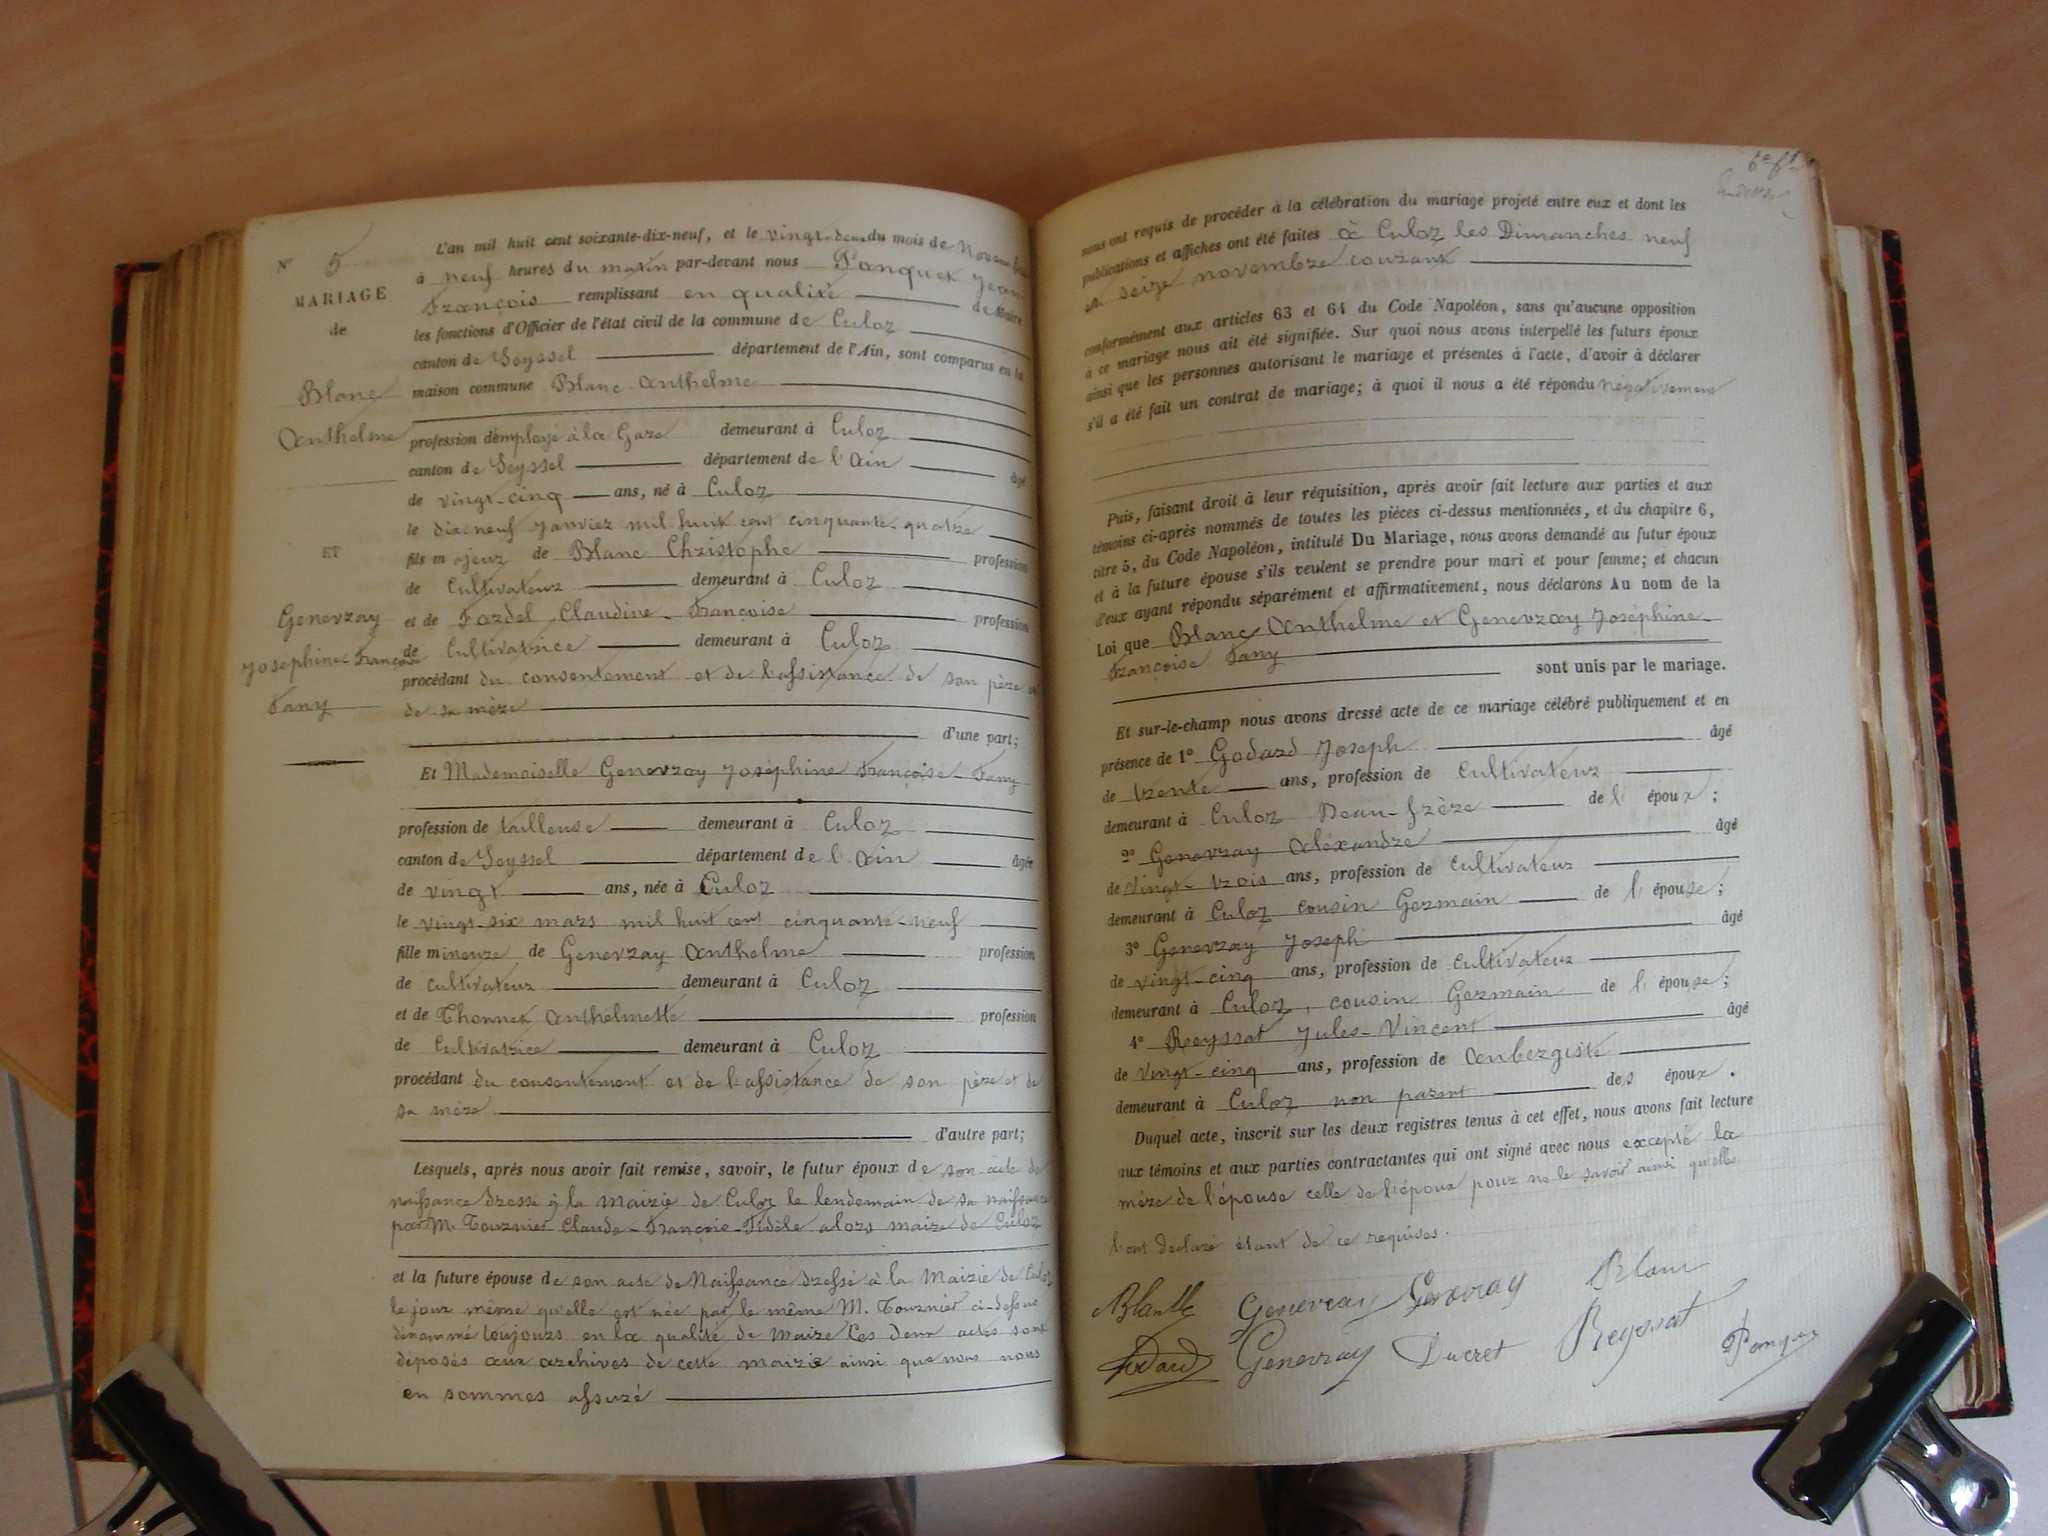 N° 5
MARIAGE
de
Blanc
Anthelme
ET
Genevray
Joséphine Françoise
Fany
L'an mil huit cent soixante-dix-neuf, et le vingt-deux du mois de Novembre
à neuf heures du matin par-devant nous Panquet Jean
François remplissant en qualité de Maire
les fonctions d'Officier de l'état civil de la commune de Culoz
canton de Seyssel département de l'Ain, sont comparus en la
maison commune Blanc Anthelme
profession d'employé à la Gare demeurant à Culoz
canton de Seyssel département de l'Ain âgé
de vingt-cinq ans, né à Culoz
le dix neuf Janvier mil huit cent cinquante-quatre
fils majeur de Blanc Christophe profession
de Cultivateur demeurant à Culoz
et de Fardel Claudine Françoise profession
de Cultivatrice demeurant à Culoz
procédant du consentement et de l'assistance de son père et
de sa mère
d'une part;
Et Mademoiselle Genevray Joséphine Françoise Fany
profession de tailleuse demeurant à Culoz
canton de Seyssel département de l'Ain âgée
de vingt ans, née à Culoz
le vingt-six mars mil huit cent cinquante-neuf
fille mineure de Genevray Anthelme profession
de cultivateur demeurant à Culoz
et de Thonnet Anthelmette profession
de Cultivatrice demeurant à Culoz
procédant du consentement et de l'assistance de son père et de
sa mère
d'autre part;
Lesquels, après nous avoir fait remise, savoir, le futur époux de son acte de
naissance dressé à la Mairie de Culoz le lendemain de sa naissance
par M. Tournier Claude-François-Fidèle alors maire de Culoz
et la future épouse de son acte de Naissance dressé à la Mairie de Culoz
le jour même qu'elle est née par le même M. Tournier ci-dessus
dénommé toujours en la qualité de Maire Ces deux actes sont
déposés aux archives de cette mairie ainsi que nous nous
en sommes assuré
nous ont requis de procéder à la célébration du mariage projeté entre eux et dont les
publications et affiches ont été faites à Culoz les Dimanches neuf
et seize novembre courant
conformément aux articles 63 et 64 du Code Napoléon, sans qu'aucune opposition
à ce mariage nous ait été signifiée. Sur quoi nous avons interpellé les futurs époux
ainsi que les personnes autorisant le mariage et présentes à l'acte, d'avoir à déclarer
s'il a été fait un contrat de mariage; à quoi il nous a été répondu négativement
Puis, faisant droit à leur réquisition, après avoir fait lecture aux parties et aux
témoins ci-après nommés de toutes les pièces ci-dessus mentionnées, et du chapitre 6,
titre 5, du Code Napoléon, intitulé Du Mariage, nous avons demandé au futur époux
et à la future épouse s'ils veulent se prendre pour mari et pour femme; et chacun
d'eux ayant répondu séparément et affirmativement, nous déclarons Au nom de la
Loi que Blanc Anthelme et Genevray Joséphine
Françoise Fany
sont unis par le mariage.
Et sur-le-champ nous avons dressé acte de ce mariage célébré publiquement et en
présence de 1° Godard Joseph âgé
de trente ans, profession de Cultivateur
demeurant à Culoz Beau-frère de l'époux;
2° Genevray Aléxandre âgé
de Vingt-trois ans, profession de cultivateur
demeurant à Culoz cousin Germain de l'épouse;
3° Genevray Joseph âgé
de vingt-cinq ans, profession de cultivateur
demeurant à Culoz, cousin Germain de l'épouse;
4° Reyssat Jules-Vincent âgé
de vingt-cinq ans, profession de Aubergiste
demeurant à Culoz non parent des époux.
Duquel acte, inscrit sur les deux registres tenus à cet effet, nous avons fait lecture
aux témoins et aux parties contractantes qui ont signé avec nous excepté la
mère de l'épouse celle de l'époux pour ne le savoir ainsi qu'elles
l'ont déclaré étant de ce requises.
Genevray Blanc
Godard Genevray Ducret Reyssat